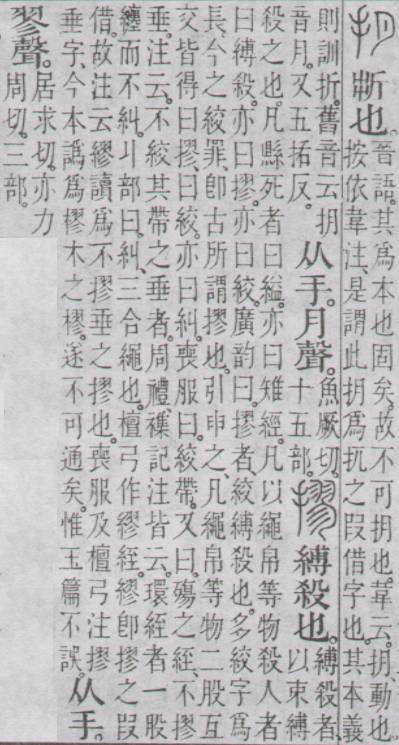 抈
斷也。
晉語。其爲本也固矣。故不可抈也。韋云。抈、動也。
按依韋注、是謂此抈爲扤之叚借字也。其本義
則訓折。舊音云。抈
音月。又五拓反。
从手。月聲。
魚厥切。
十五部。
摎
縛殺也。
縛殺者、
以束縛
殺之也。凡縣死者曰縊。亦曰雉經。凡以繩帛等物殺人者
曰縛殺。亦曰摎。亦曰絞。廣韵曰。摎者、絞縛殺也。多絞字爲
長。今之絞罪、卽古所謂摎也。引申之、凡繩帛等物二股互
交皆得曰摎、曰絞。亦曰糾。喪服曰。絞帶。又曰。殤之絰、不摎
垂。注云。不絞其帶之垂者。周禮、襍記注皆云。環絰者、一股
纏而不糾。丩部曰。糾、三合繩也。檀弓作繆絰。繆卽摎之叚
借。故注云繆讀爲不摎垂之摎也。喪服及檀弓注摎
垂字、今本譌爲樛木之樛。遂不可通矣。惟玉篇不誤。
从手。
翏聲。
居求切。亦力
周切。三部。